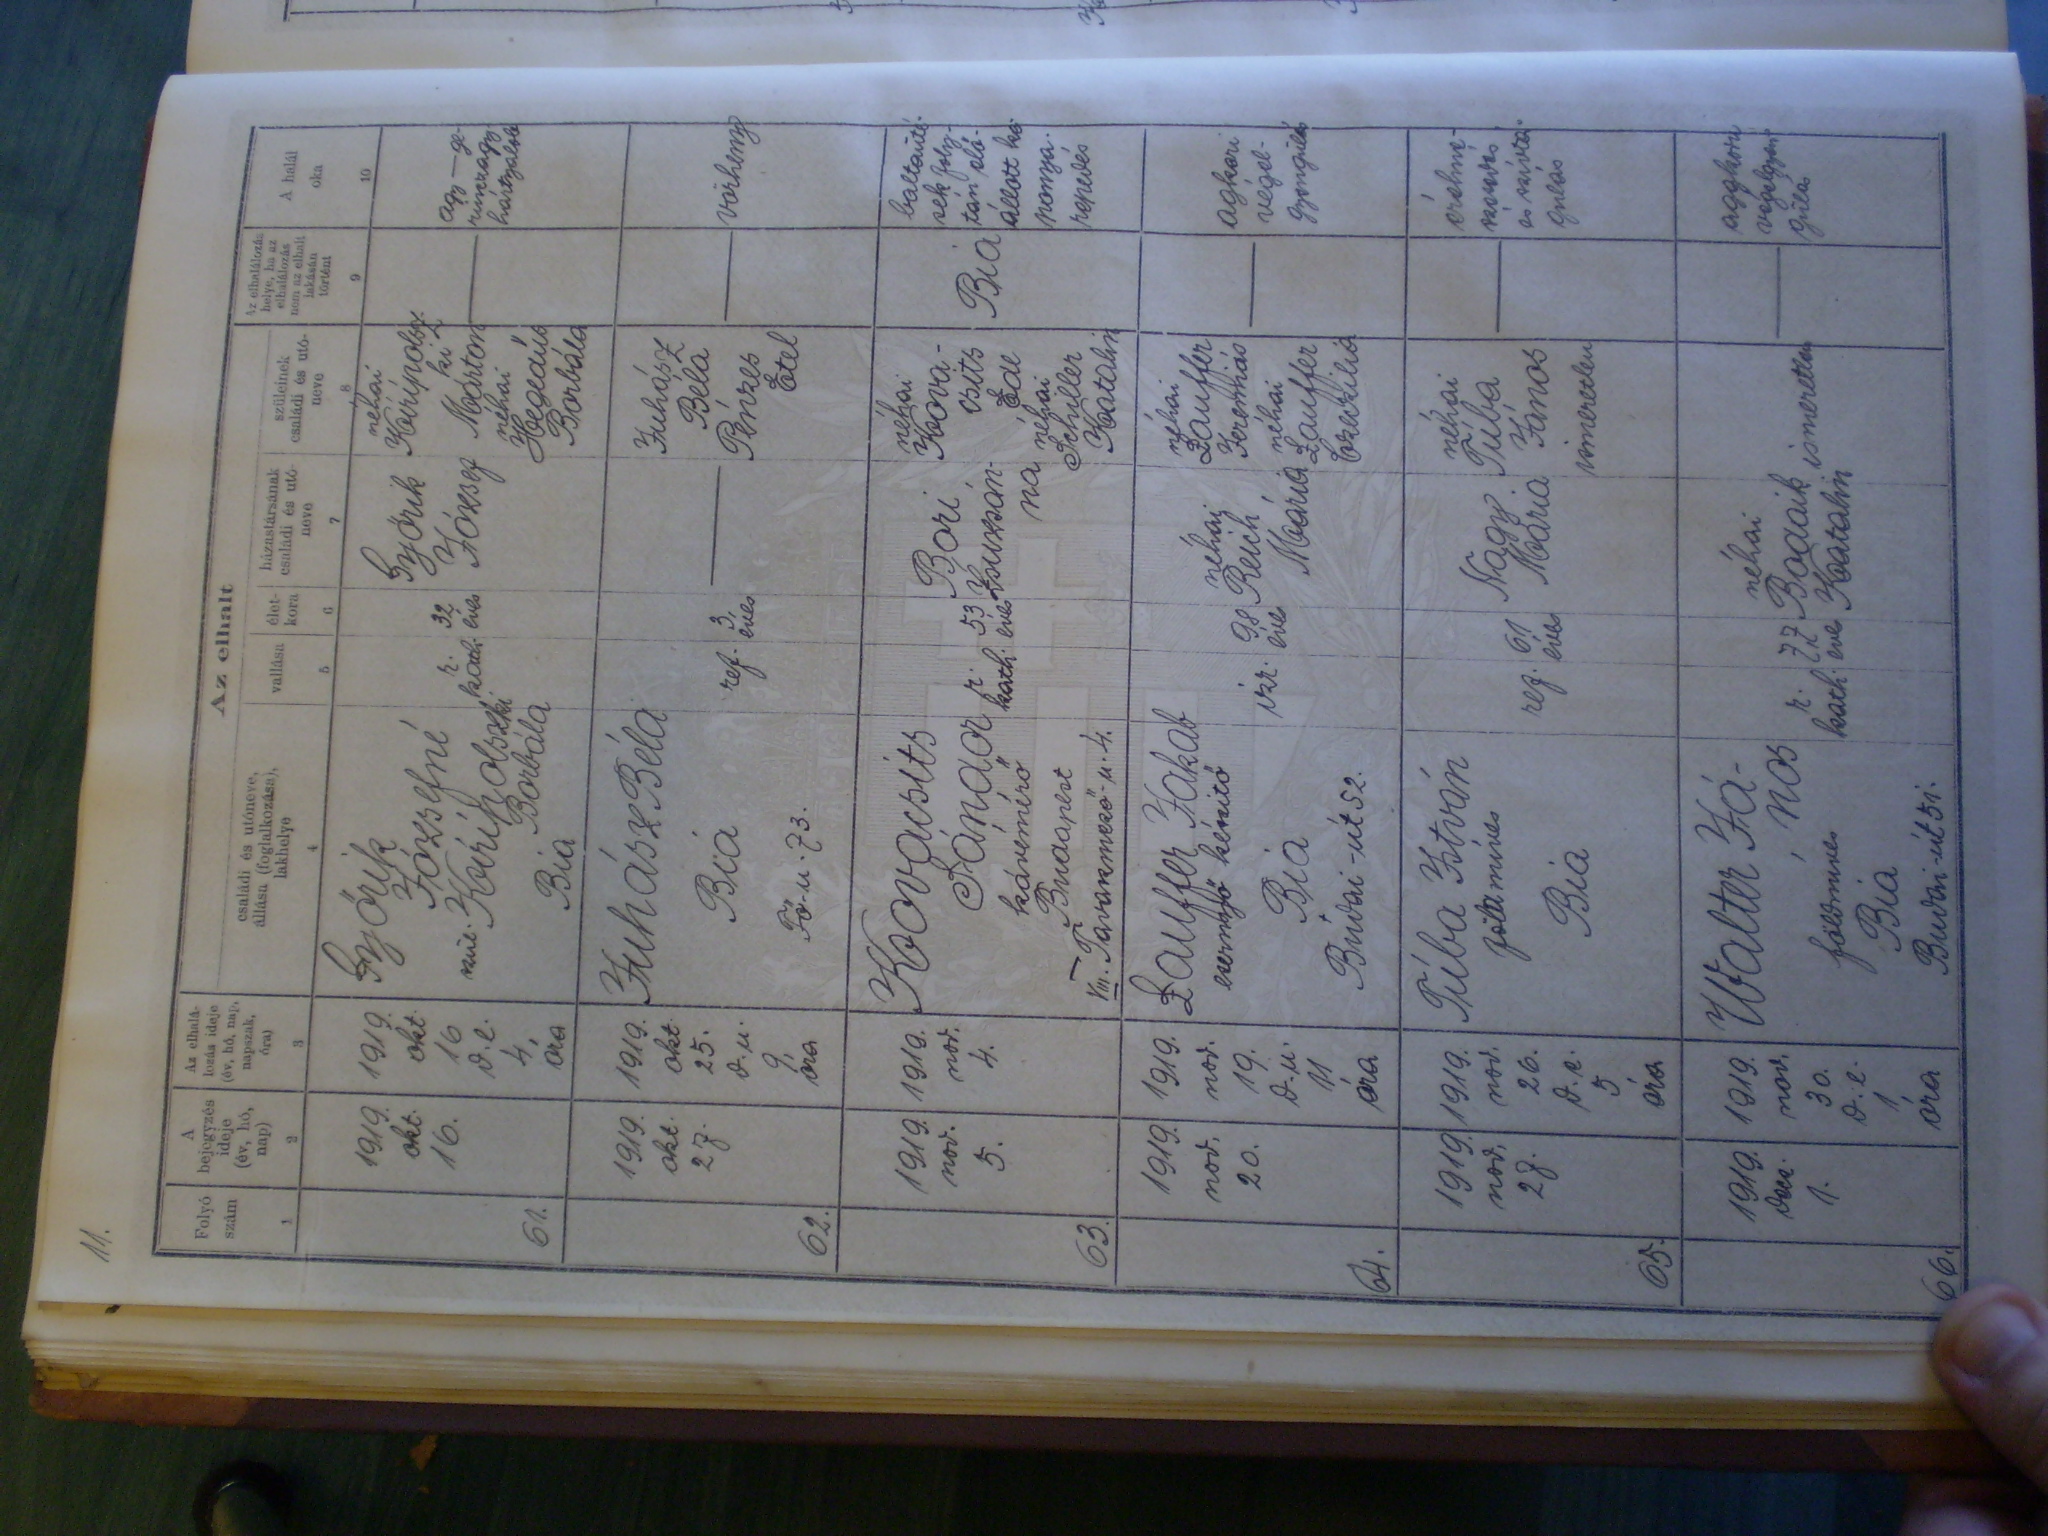 11.
Az elhalt
Folyó
szám
1
A
bejegyzés
ideje
(év, hó,
nap)
2
Az elhalá-
lozás ideje
(év, hó, nap,
napszak,
óra)
3
családi és utóneve,
állása (foglalkozása),
lakhelye
4
vallása
5
élet-
kora
6
házastársának
családi és utó-
neve
7
szüleinek
családi és utó-
neve
8
Az elhalálozás
helye, ha az
elhalálozás
nem az elhalt
lakásán
történt
9
A halál
oka
10
61.
1919.
okt.
16.
1919.
okt.
16
d.e.
4
óra
Győrik
Józsefné
szül.
Borbála
Bia
r.
kath.
32
éves
Győrik
József
néhai
Márton
néhai
Hegedűs
Borbála
agy-ge-
rincz agy
62.
1919.
okt.
27.
1919.
okt.
25.
d.u.
9
óra
Juhász Béla
Bia
Fő-u. 73.
ref.
3
éves
—
Juhász
Béla
Pénzes
Etel
—
vörheny
63.
1919.
nov.
5.
1919.
nov.
4.
Kovasits
Sándor
kávémérő
Budapest
VIII. Tavaszmező-u. 4.
r.
kath.
53
éves
Bori
Zsuzsán-
na
néhai
Kova-
sits
Ede
néhai
Schiller
Katalin
Bia
sek foly-
tán elő-
állott ko
ponya-
repedés
64.
1919.
nov.
20.
1919.
nov.
19.
d.u.
11
óra
Lauffer Jakab
esernyő készítő
Bia
Budai-út 52.
izr.
98
éves
néhai
Reich
Mária
néhai
Lauffer
Jeremiás
néhai
Lauffer
Czeczilia
—
agkori
végel-
gyengülés
65.
1919.
nov.
27.
1919.
nov.
26.
d.e.
5
óra
Túba István
földmíves
Bia
ref.
61
éves
Nagy
Mária
néhai
Túba
János
ismeretlen
—
érelme-
szesedés
és
66.
1919.
dec.
1.
1919.
nov.
30.
d.e.
1
óra
Walter Já-
nos
földmíves
Bia
Budai-út 51.
r.
kath.
77
éves
néhai
Katalin
ismeretlen
—
aggkori
végelgyen
gülés